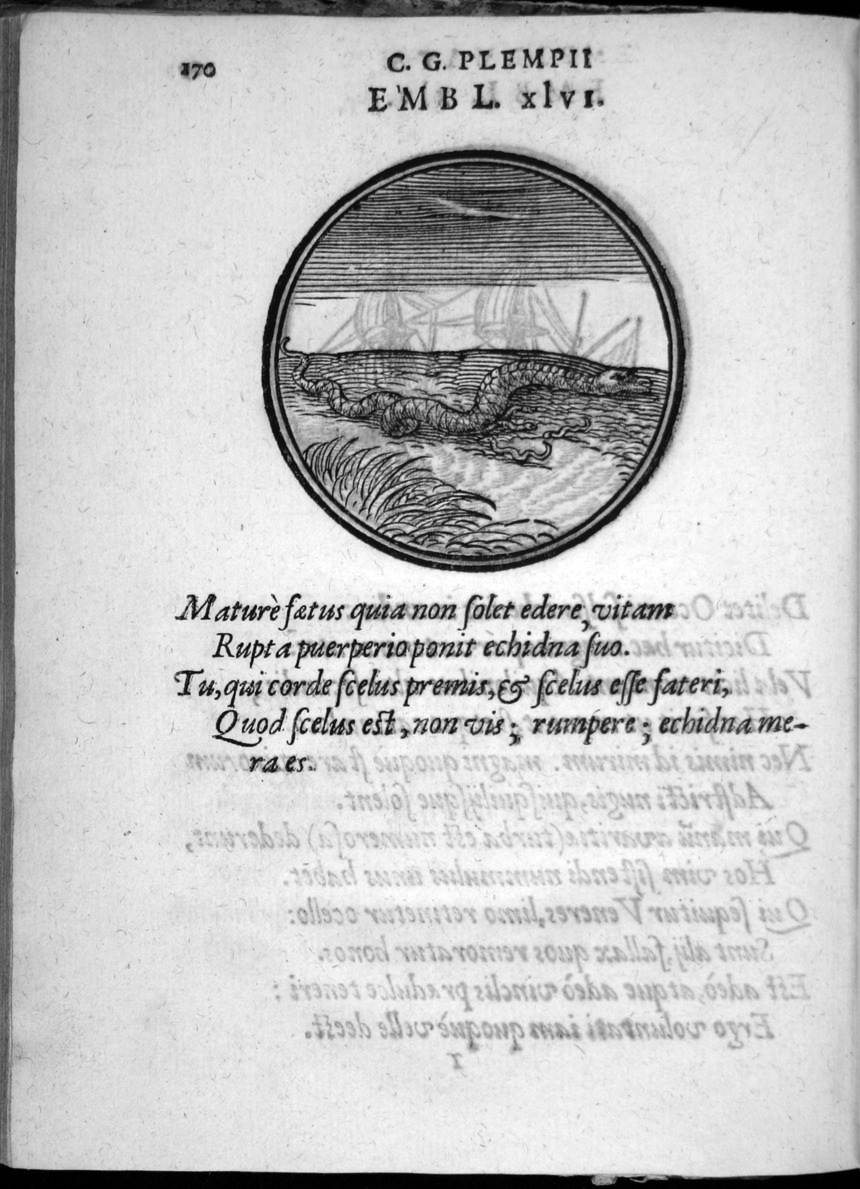 170
C. G. PLEMPII
EMBL. xlvi.
Maturè fætus quia non ſolet edere, vitam
Rupta puerperio ponit echidna ſuo.
Tu, qui corde ſcelus premis, & ſcelus eſſe fateri,
Quod ſcelus est, non vis; rumpere; echidna me-
ra es.